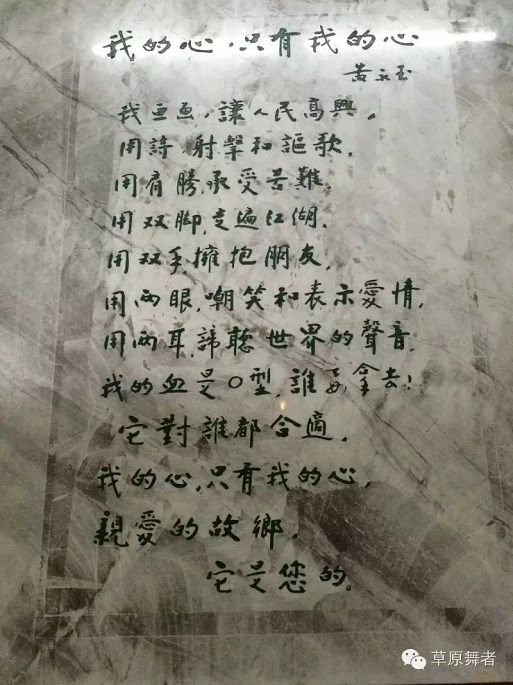 我的心，只有我的心
黄永玉
我画画，讓人民高興，
用詩，射擊和謳歌，
用肩膀承受苦難，
用双脚，走遍江湖，
用双手，擁抱朋友，
用两眼，嘲笑和表示愛情，
用两耳，諦聽世界的聲音，
我的血是O型，誰要拿去！
它對誰都合適，
我的心，只有我的心，
親愛的故鄉，
它是您的。
草原舞者